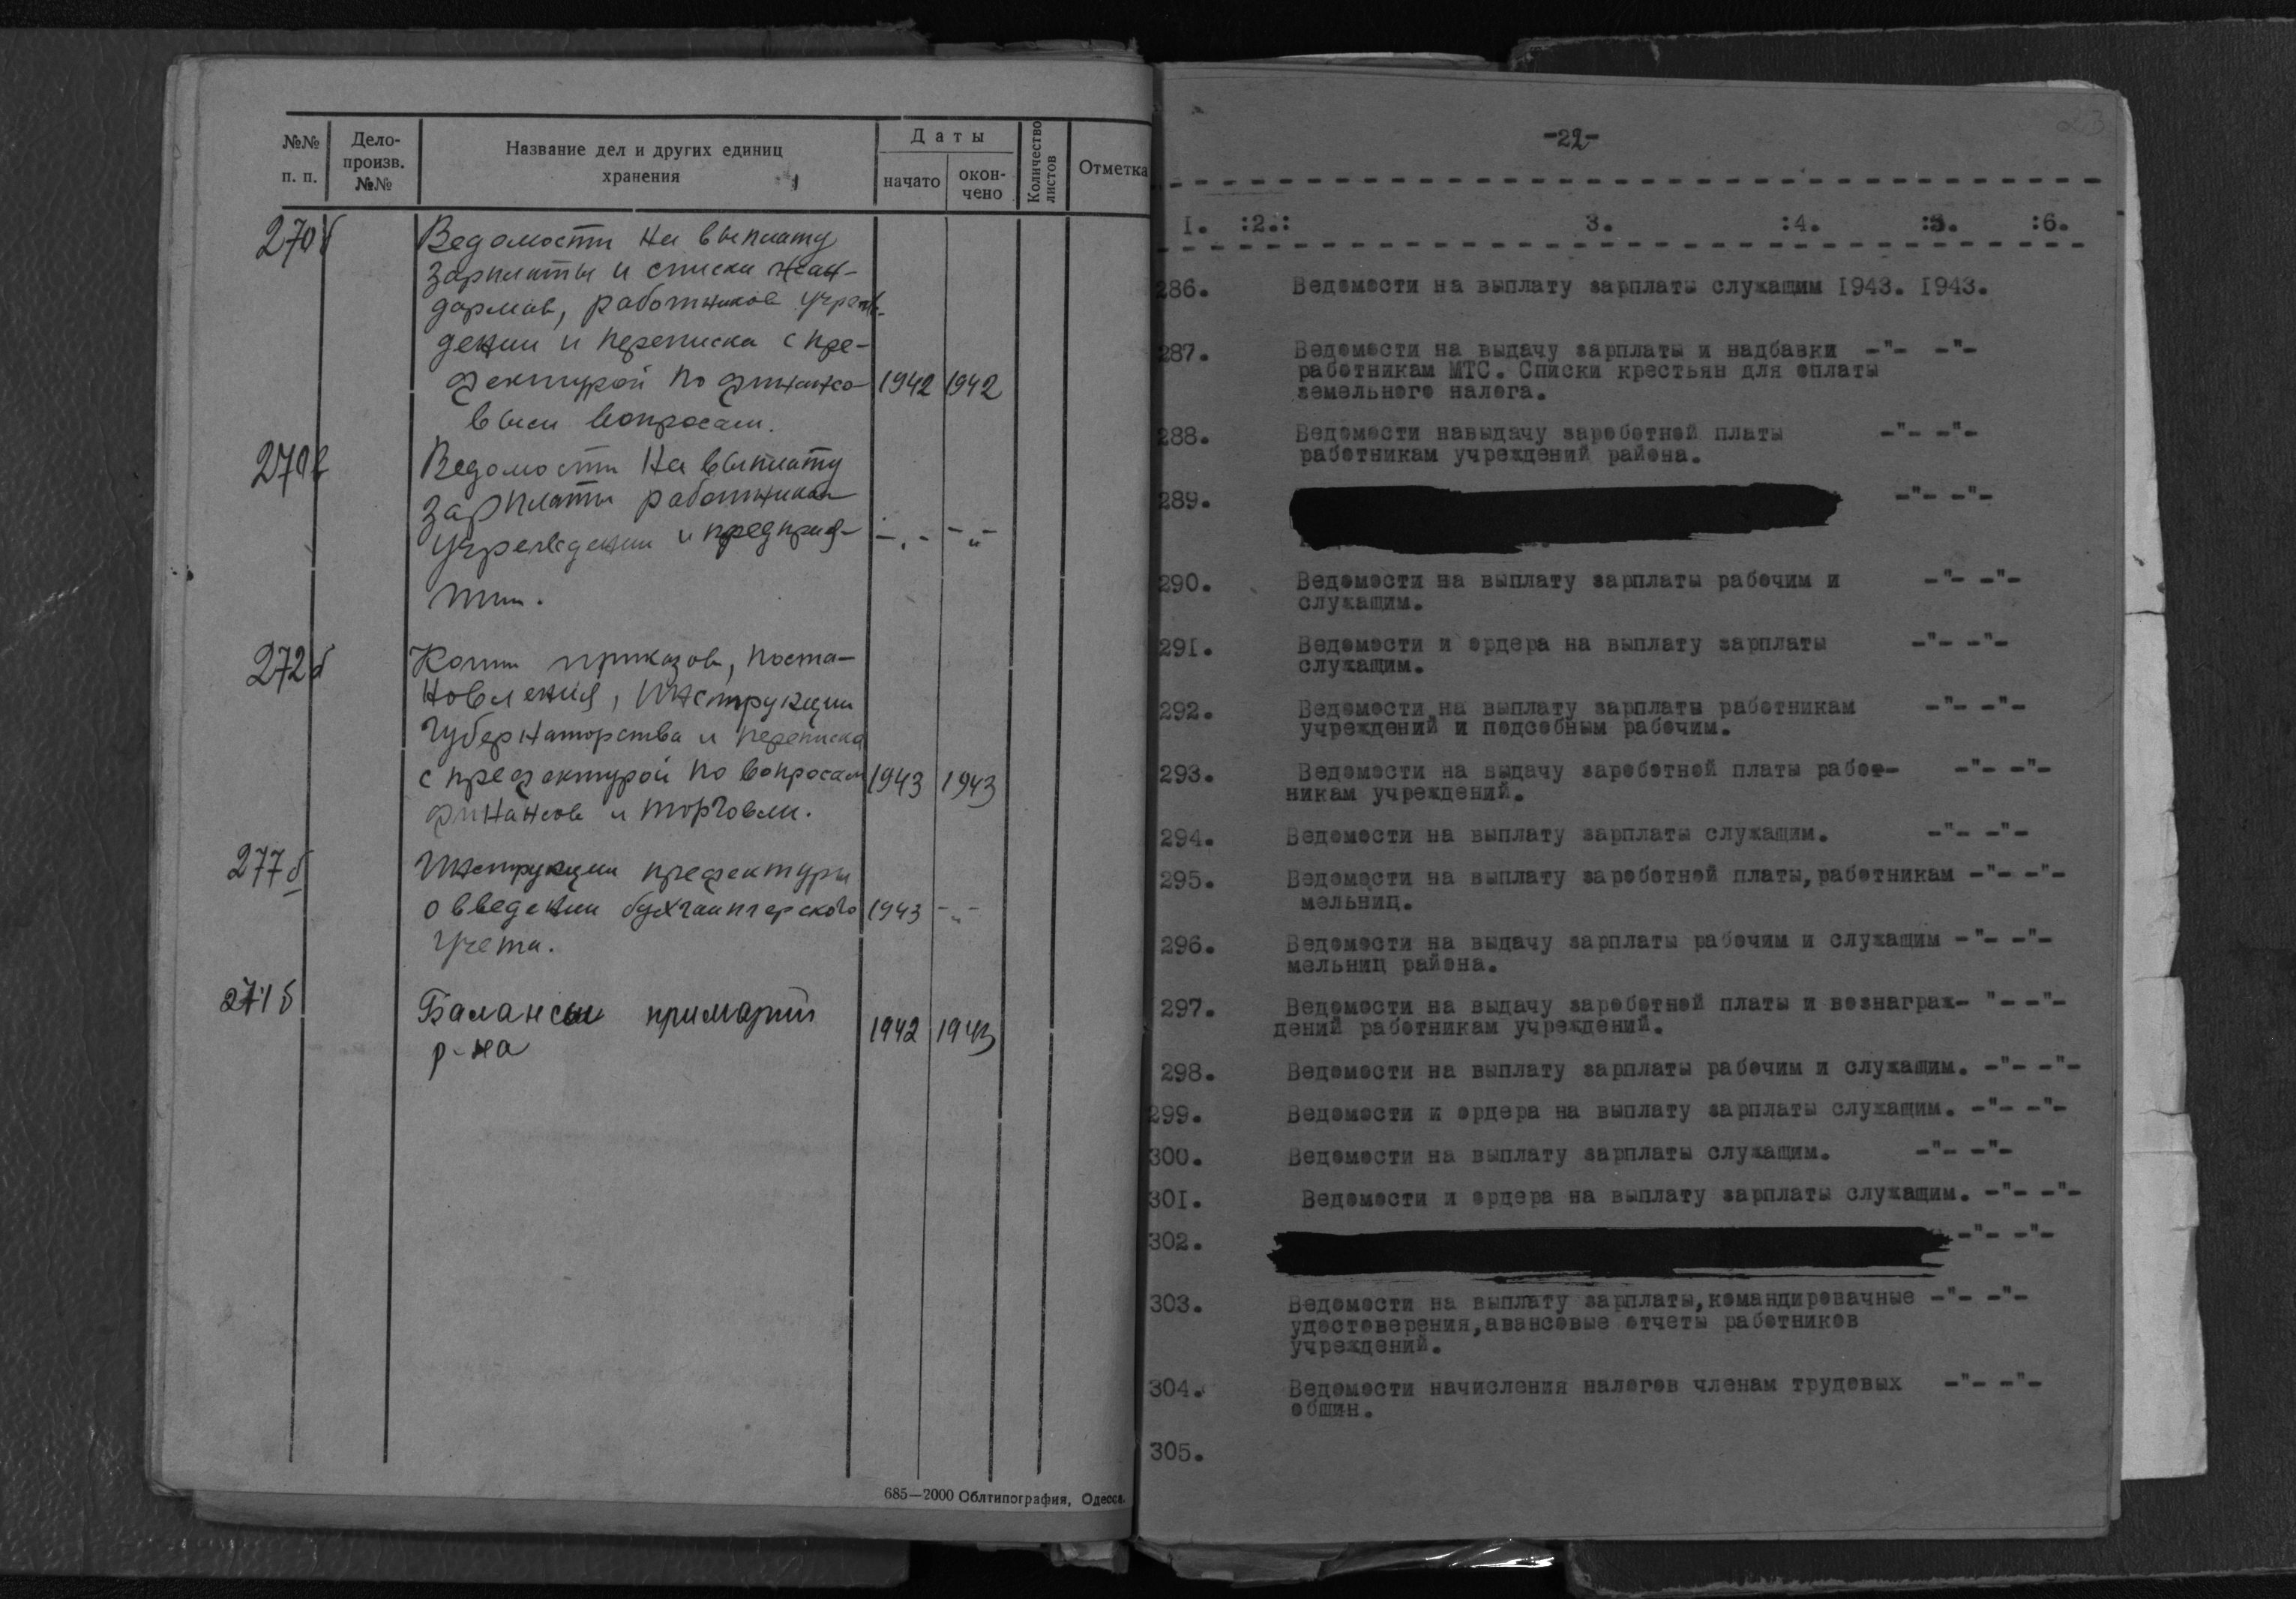 №№ п. п.
Дело-
произв.
№№
Название дел и других единиц
хранения
Даты
начато
окон-
чено
Количество
листов
Отметка
270б
Ведомости на выплату
зарплаты и списки жан-
дармов, работников учреж-
дении и переписка с пре-
фектурой по финансо- 1942 1942
вым вопросам.
270в
Ведомости на выплату
зарплаты работникам
учреждении и предприя- -„- -„-
тии.
272б
Копии приказов, поста-
новления, инструкции
Губернаторства и переписка
с префектурой по вопросам 1943 1943
финансов и торговли.
277б
Инструкции префектуры
о введении бухгалтерского 1943 -„-
учета.
271б
Балансы примарии
р-на 1942 1943
685—2000 Облтипография, Одесса.
23
-22-
I. :2.: 3. :4. :5. :6.
286. Ведомости на выплату зарплаты служащим 1943. 1943.
287. Ведомости на выдачу зарплаты и надбавки -"- -"-
работникам МТС. Списки крестьян для оплаты
земельного налога.
288. Ведомости навыдачу заработной платы -"- -"-
работникам учреждений района.
289. -"- -"-
290. Ведомости на выплату зарплаты рабочим и -"- -"-
служащим.
291. Ведомости и ордера на выплату зарплаты -"- -"-
служащим.
292. Ведомости на выплату зарплаты работникам -"- -"-
учреждений и подсобным рабочим.
293. Ведомости на выдачу заработной платы работ- -"- -"-
никам учреждений.
294. Ведомости на выплату зарплаты служащим. -"- -"-
295. Ведомости на выплату заработной платы,работникам -"- -"-
мельниц.
296. Ведомости на выдачу зарплаты рабочим и служащим -"- -"-
мельниц района.
297. Ведомости на выдачу заработной платы и вознаграж- "- -"-
дений работникам учреждений.
298. Ведомости на выплату зарплаты рабочим и служащим. -"- -"-
299. Ведомости и ордера на выплату зарплаты служащим. -"- -"-
300. Ведомости на выплату зарплаты служащим. -"- -"-
301. Ведомости и ордера на выплату зарплаты служащим. -"- -"-
302. -"- -"-
303. Ведомости на выплату зарплаты,командировачные -"- -"-
удостоверения,авансовые отчеты работников
учреждений.
304. Ведомости начисления налогов членам трудовых -"- -"-
общин.
305.